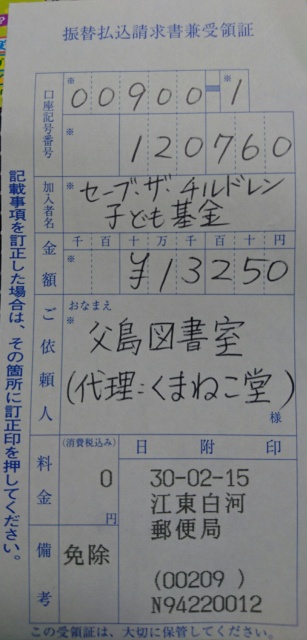 振替払込請求書兼受領証
口座記号番号
※ 00900-※1
※ 120760
加入者名
※ セーブ・ザ・チルドレン
子ども基金
金額
千 百 十 万 千 百 十 円
¥13250
ご依頼人
おなまえ
※
父島図書室
(代理:くまねこ堂)
様
料金
(消費税込み)
0
円
備考
免除
日 附 印
30-02-15
江東白河
郵便局
(00209 )
N94220012
記載事項を訂正した場合は、その箇所に訂正印を押してください。
この受領証は、大切に保管してください。